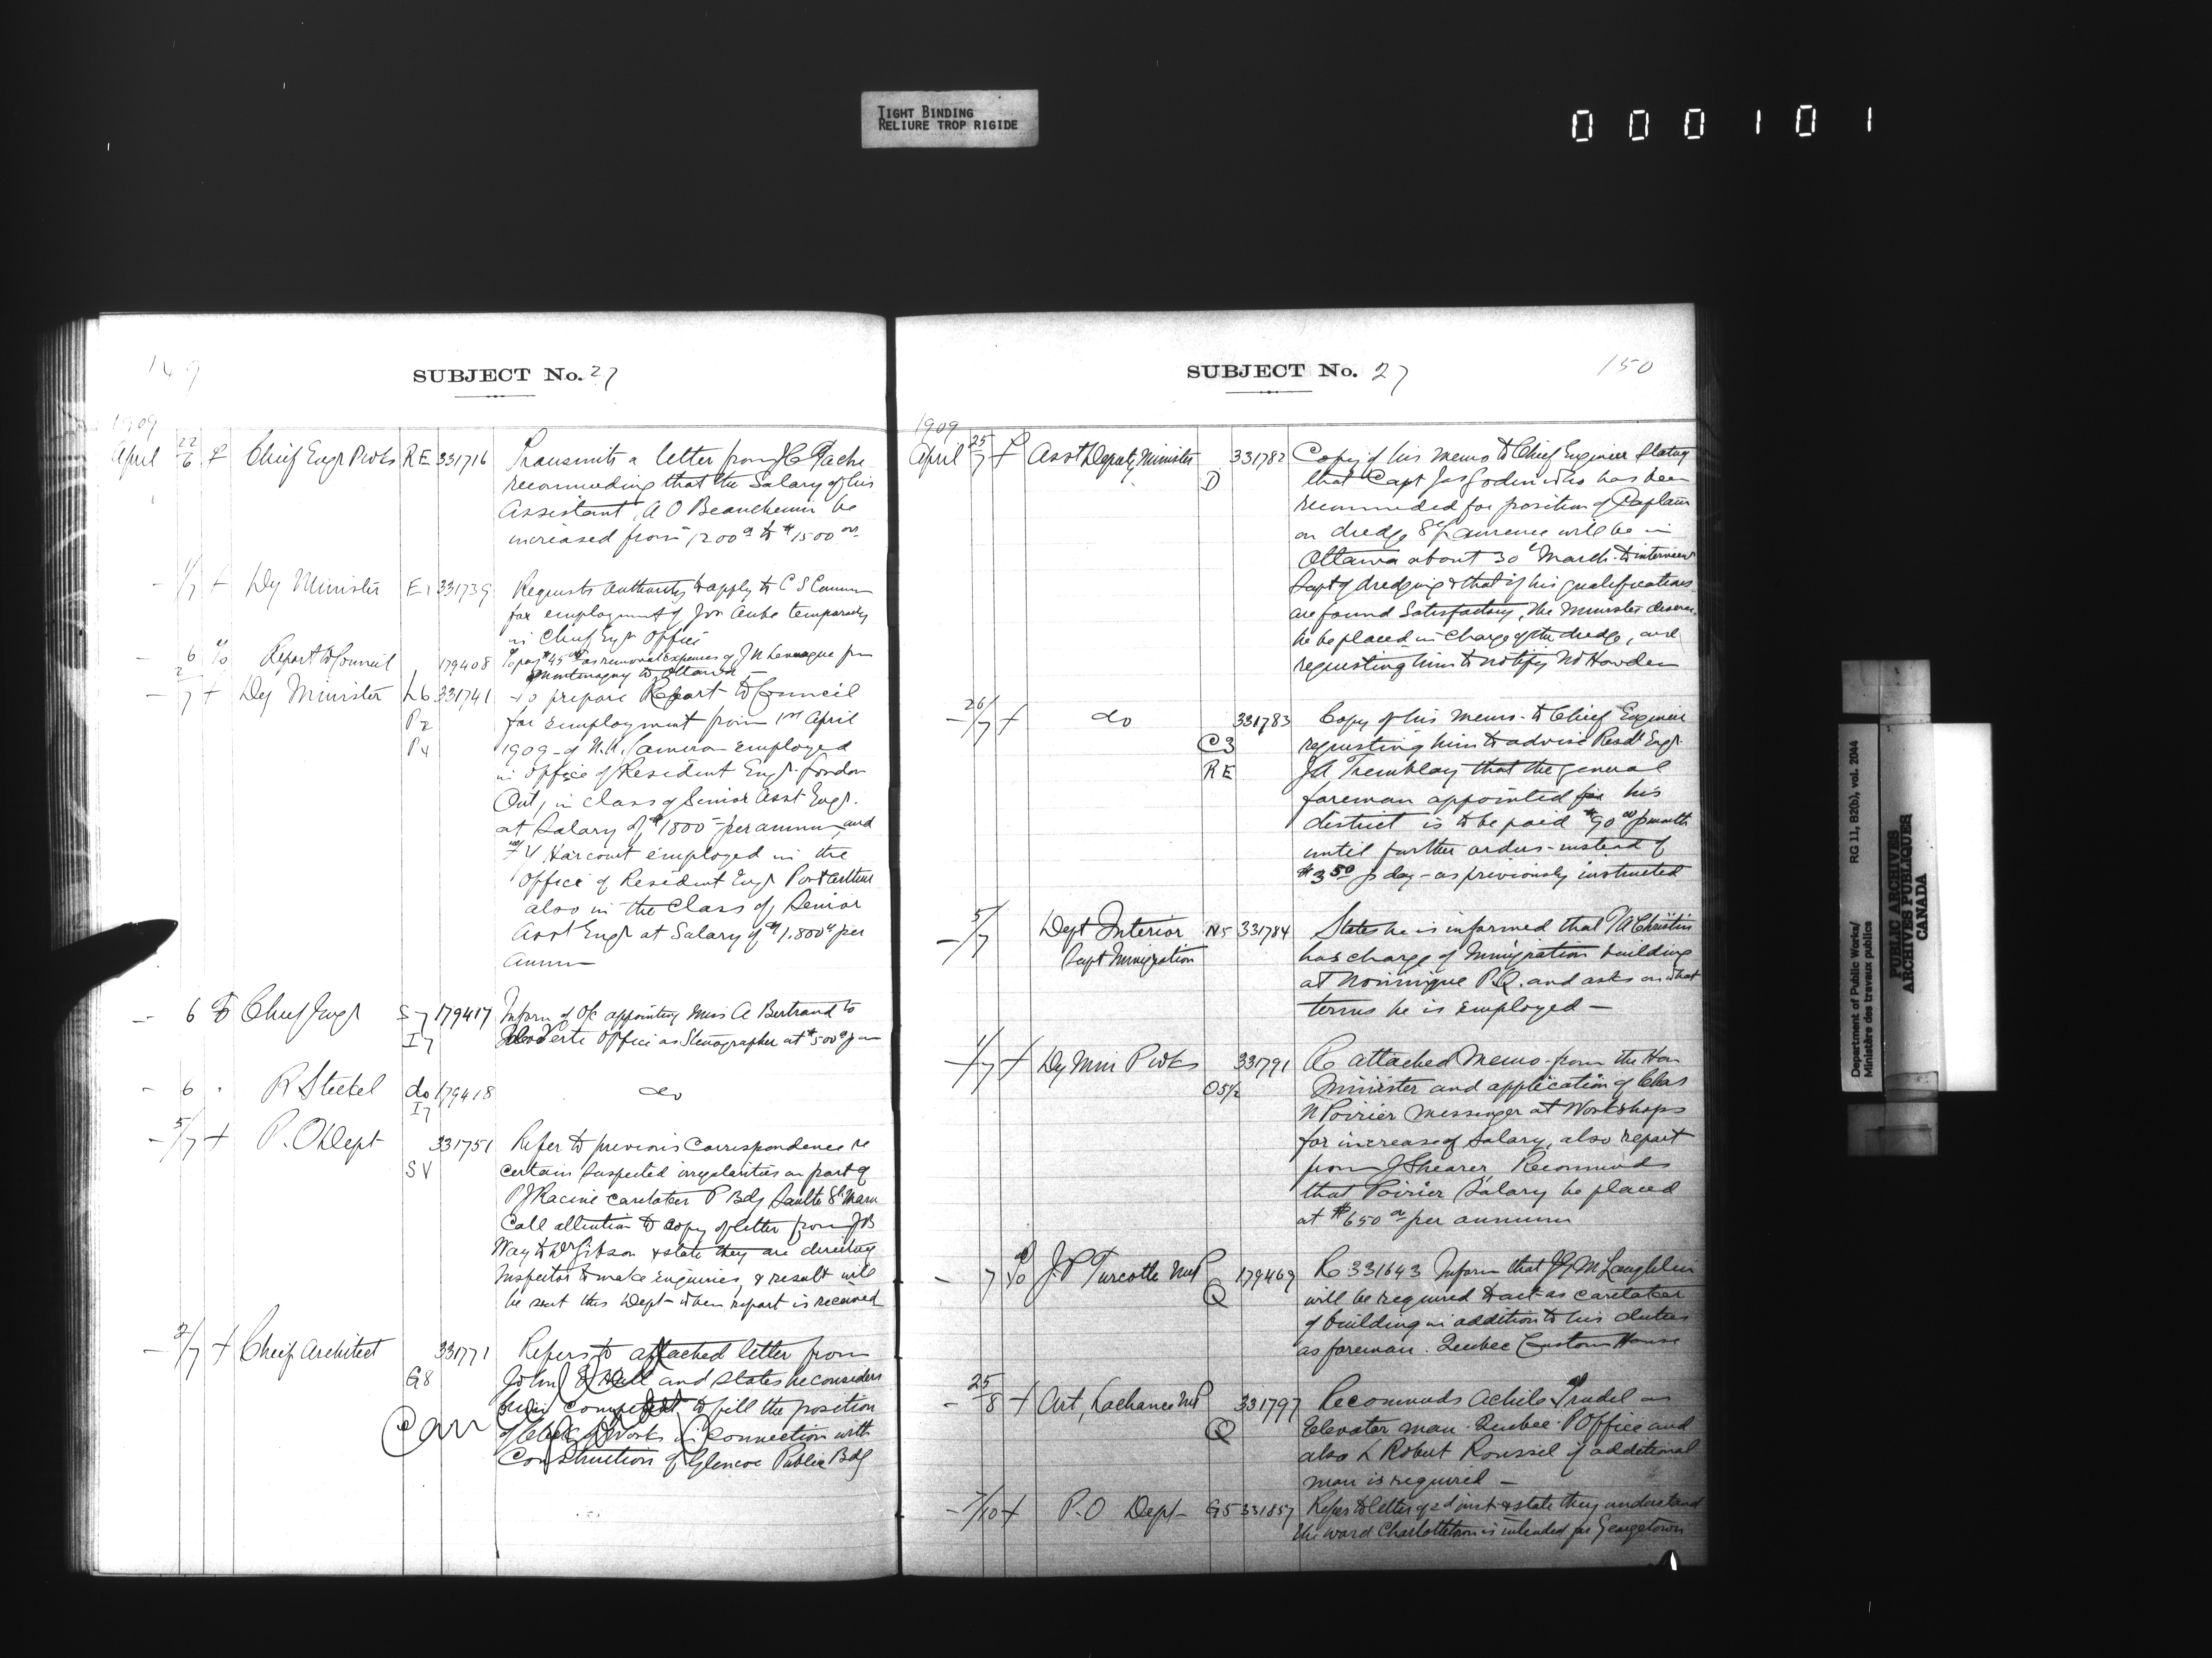 TIGHT BINDING
RELIURE TROP RIGIDE
000101
149
SUBJECT No. 27
1909
April 22/6 Chief Engr Pwks RE 331716 Transmits a letter from J C Tache
recommending that the Salary of his
Assistant, A O Beauchemin be
increased from 1200 to $1500
- 1/7 + Dy Minister E1 331739 Requests authority to apply to C S Comm
for employment of Jos Aube temporarily
in Chief Engr Office
- 6 Report to Council 179408 To pay $45 as removal expenses of J N from
Montmagny to Ottawa
- 2/7 + Dy Minister L6 331741 To prepare Report to Council
P2 for employment from 1st April
P4 1909 of N.A. Cameron employed
in office of Resident Engr. London
Ont, in class of Senior Asst Engr.
at Salary of $1800 per annum, and
F Y Harcourt employed in the
Office of Resident Engr Port Arthur
also in the Class of Senior
Asst Engr at Salary of $1,800 per
annum
- 6 To Chief Engr S7 179417 Inform of O/C appointing Miss A Bertrand to
I7 Office as Stenographer at $500 p an
- 6 " R Steckel do 179418 do
I7
- 5/7 + P. O Dept 331751 Refer to previous correspondence re
SV certain suspected irregularities on part of
P J Racine caretaker P Bdg Saulte St Marie
Call attention to copy of letter from J B
Way to Dr Gibson & state they are directing
Inspector to make enquiries, & result will
be sent this Dept when report is received
- 2/7 + Chief Architect 331771 Refers to attached letter from
G8 John and states he considers
him competent to fill the position
of Clerk of Works in connection with
Construction of Glencoe Public Bdg
Can
SUBJECT No. 27
150
1909
April 25/7 + Asst Deputy Minister 331782 Copy of his memo to Chief Engineer stating
D that Capt Jas Godin who has been
recommended for position of Captain
on dredge St Lawrence will be in
Ottawa about 30 March to interview
Supt of dredging & that if his qualifications
are found Satisfactory, the Minister desires
he be placed in charge of the dredge, and
requesting him to notify Howden
- 26/7 + do 331783 Copy of his memo to Chief Engineer
C3 requesting him to advise Resdt Engr.
RE J A Tremblay that the general
foreman appointed for his
district is to be paid $90 p month
until further orders instead of
$3.50 p day - as previously instructed
- 5/7 Dept Interior N5 331784 States he is informed that Christin
Supt Immigration has charge of Immigration building
at Nominique P.Q. and asks on what
terms he is employed -
- 1/7 + Dy Min Pwks 331791 Re attached Memo from the Hon
O5½ Minister and application of Chas
N Poirier Messenger at Workshops
for increase of salary, also report
from J Shearer Recommends
that Poirier Salary be placed
at $650 per annum
- 7 To J. P Turcotte MP 179469 Re 331643 Inform that J McLaughlin
Q will be required to act as caretaker
of building in addition to his duties
as foreman. Quebec Custom House
- 25/8 + Art, Lachance MP 331797 Recommends Achile Trudel as
Q Elevator man. Quebec P Office and
also L Robert Roussel if additional
man is required -
- 7/10 + P. O Dept - G5 331857 Refer to letter of 2d inst & state they understand
the word Charlottetown is intended for Georgetown
Department of Public Works/
Ministère des travaux publics
RG 11, B2(b), vol. 2044
PUBLIC ARCHIVES
ARCHIVES PUBLIQUES
CANADA